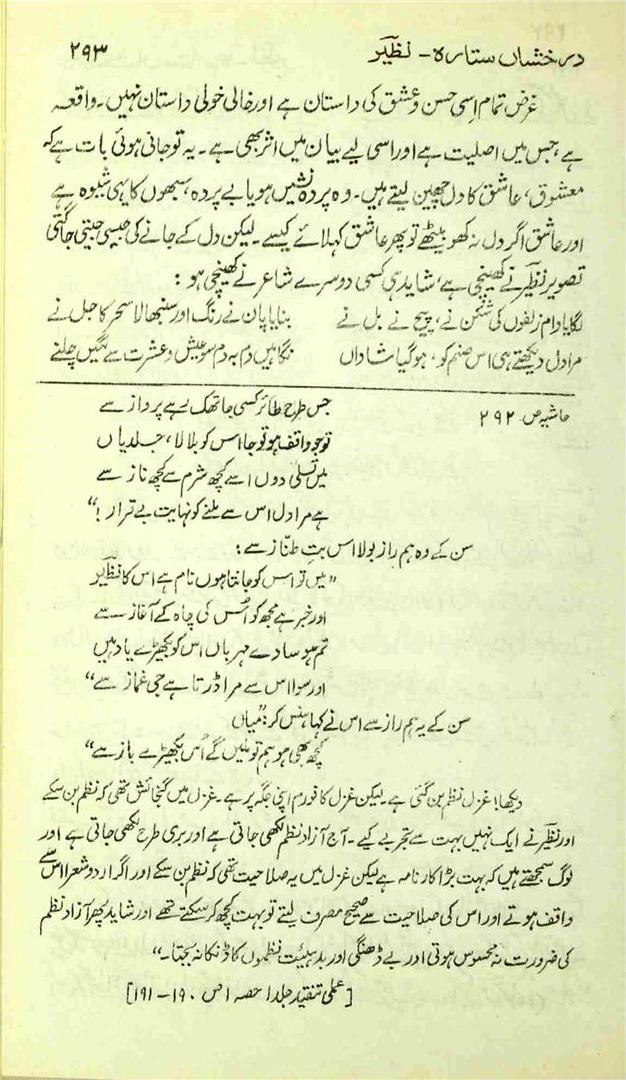 درخشاں ستارہ - نظیرؔ ۲۹۳
غرض تمام اسی حسن و عشق کی داستان ہے اور خالی خولی داستان نہیں۔ واقعہ
ہے، جس میں اصلیت ہے اور اسی لیے بیان میں اثر بھی ہے۔ یہ تو جانی ہوئی بات ہے کہ
معشوق، عاشق کا دل چھین لیتے ہیں۔ وہ پردہ نشیں ہو یا بے پردہ، سبھوں کا یہی شیوہ ہے
اور عاشق اگر دل نہ کھو بیٹھے تو پھر عاشق کہلائے کیسے۔ لیکن دل کے جانے کی جیسی جیتی جاگتی
تصویر نظیرؔ نے کھینچی ہے، شاید ہی کسی دوسرے شاعر نے کھینچی ہو:
لگایا دام زلفوں کی شکن نے، پیچ نے بل نے بنایا پان نے رنگ اور سنبھالا سحر کاجل نے
مرا دل دیکھتے ہی اس صنم کو، ہو گیا شاداں نگاہیں دم بہ دم سو عیش و عشرت سے لگیں چلنے
حاشیہ ص ۲۹۲
جس طرح طائر کسی جا تھک رہے پرواز سے
تو جو واقف ہو تو جا اس کو بلا لا، جلد یاں
میں تسلی دوں اسے کچھ شرم سے کچھ ناز سے
ہے مرا دل اس سے ملنے کو نہایت بے قرار!“
سن کے وہ ہم راز بولا اس بتِ طنّاز سے:
”میں تو اس کو جانتا ہوں نام ہے اس کا نظیرؔ
اور خبر ہے مجھ کو اُس کی چاہ کے آغاز سے
تم ہو سادے مہرباں اس کو بکھیڑے یاد ہیں
اور سوا اس سے مرا ڈرتا ہے جی غماز سے“
سن کے یہ ہم راز سے اس نے کہا ہنس کر: ”میاں
کچھ بھی ہو ہم تو ملیں گے اُس بکھیڑے باز سے“
دیکھا! غزل نظم بن گئی ہے۔ لیکن غزل کا فورم اپنی جگہ پر ہے۔ غزل میں گنجائش تھی کہ نظم بن سکے
اور نظیرؔ نے ایک نہیں بہت سے تجربے کیے۔ آج آزاد نظم لکھی جاتی ہے اور بری طرح لکھی جاتی ہے اور
لوگ سمجھتے ہیں کہ بہت بڑا کارنامہ ہے لیکن غزل میں یہ صلاحیت تھی کہ نظم بن سکے اور اگر اردو شعرا اس سے
واقف ہوتے اور اس کی صلاحیت سے صحیح مصرف لیتے تو بہت کچھ کر سکتے تھے اور شاید پھر آزاد نظم
کی ضرورت نہ محسوس ہوتی اور بے ڈھنگی اور بد ہیئت نظموں کا ڈنکا نہ بجتا۔“
[عملی تنقید جلد۱ حصہ ۱ ص ۱۹۰-۱۹۱]